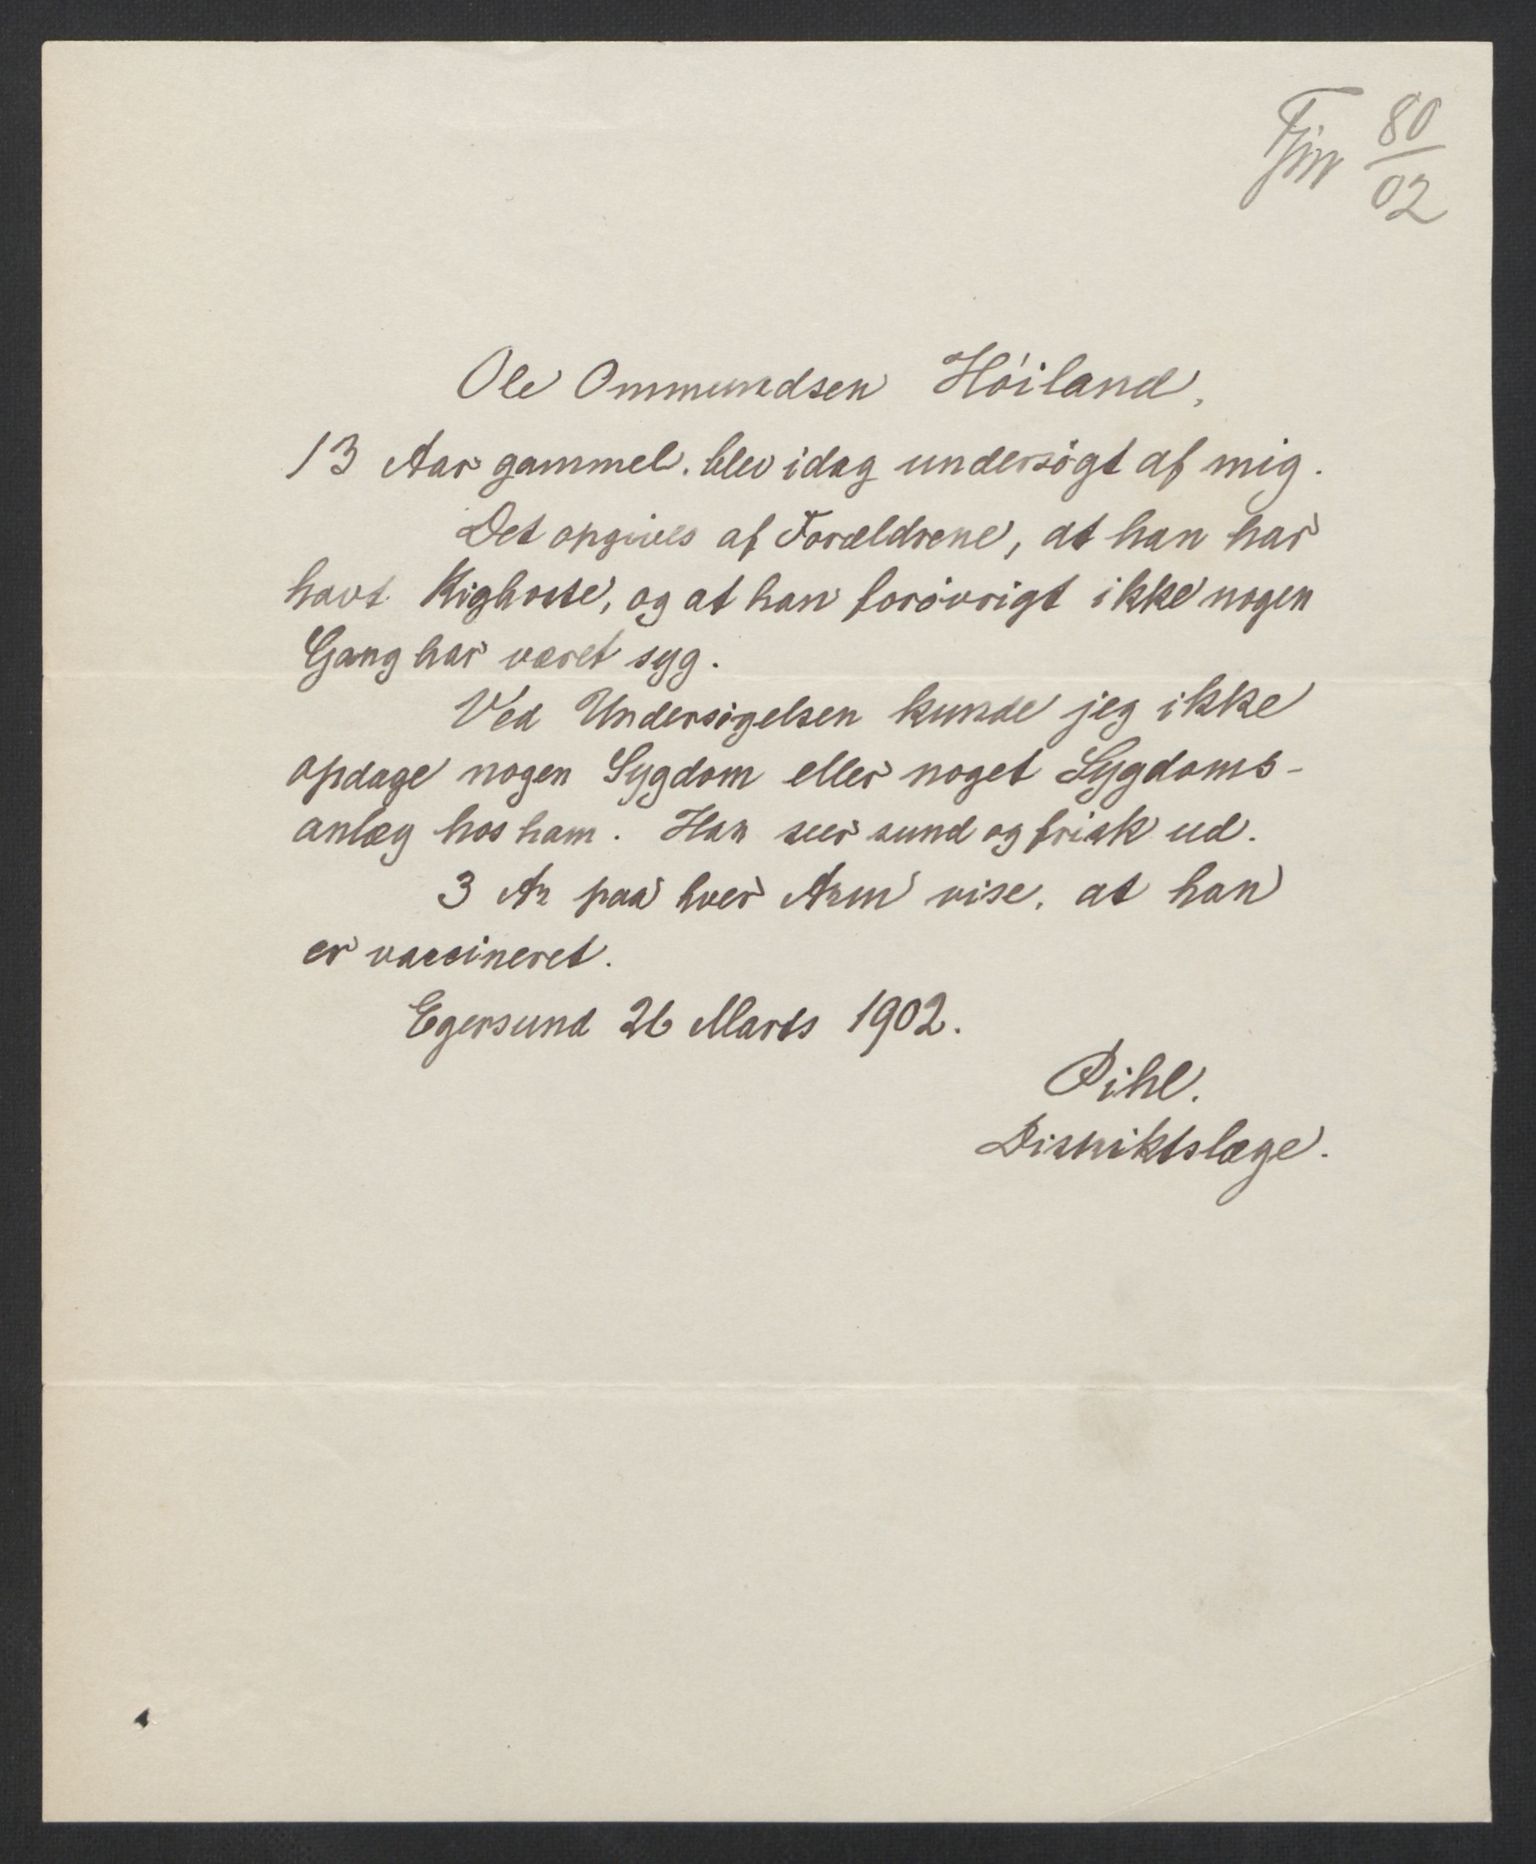 80
02
Ole Ommundsen Höiland,
13 Aar gammel, blev idag undersögt af mig.
Det opgives af Forældrene, at han har
havt Kighoste, og at han forövrigt ikke nogen
Gang har været syg.
Ved Undersögelsen kunde jeg ikke
opdage nogen Sygdom eller noget Sygdoms-
anlæg hos ham. Han seer sund og frisk ud.
3 Ar paa hver Arm vise, at han
er vaccineret.
Egersund 26 Marts 1902.
Pihl.
Distriktslæge.